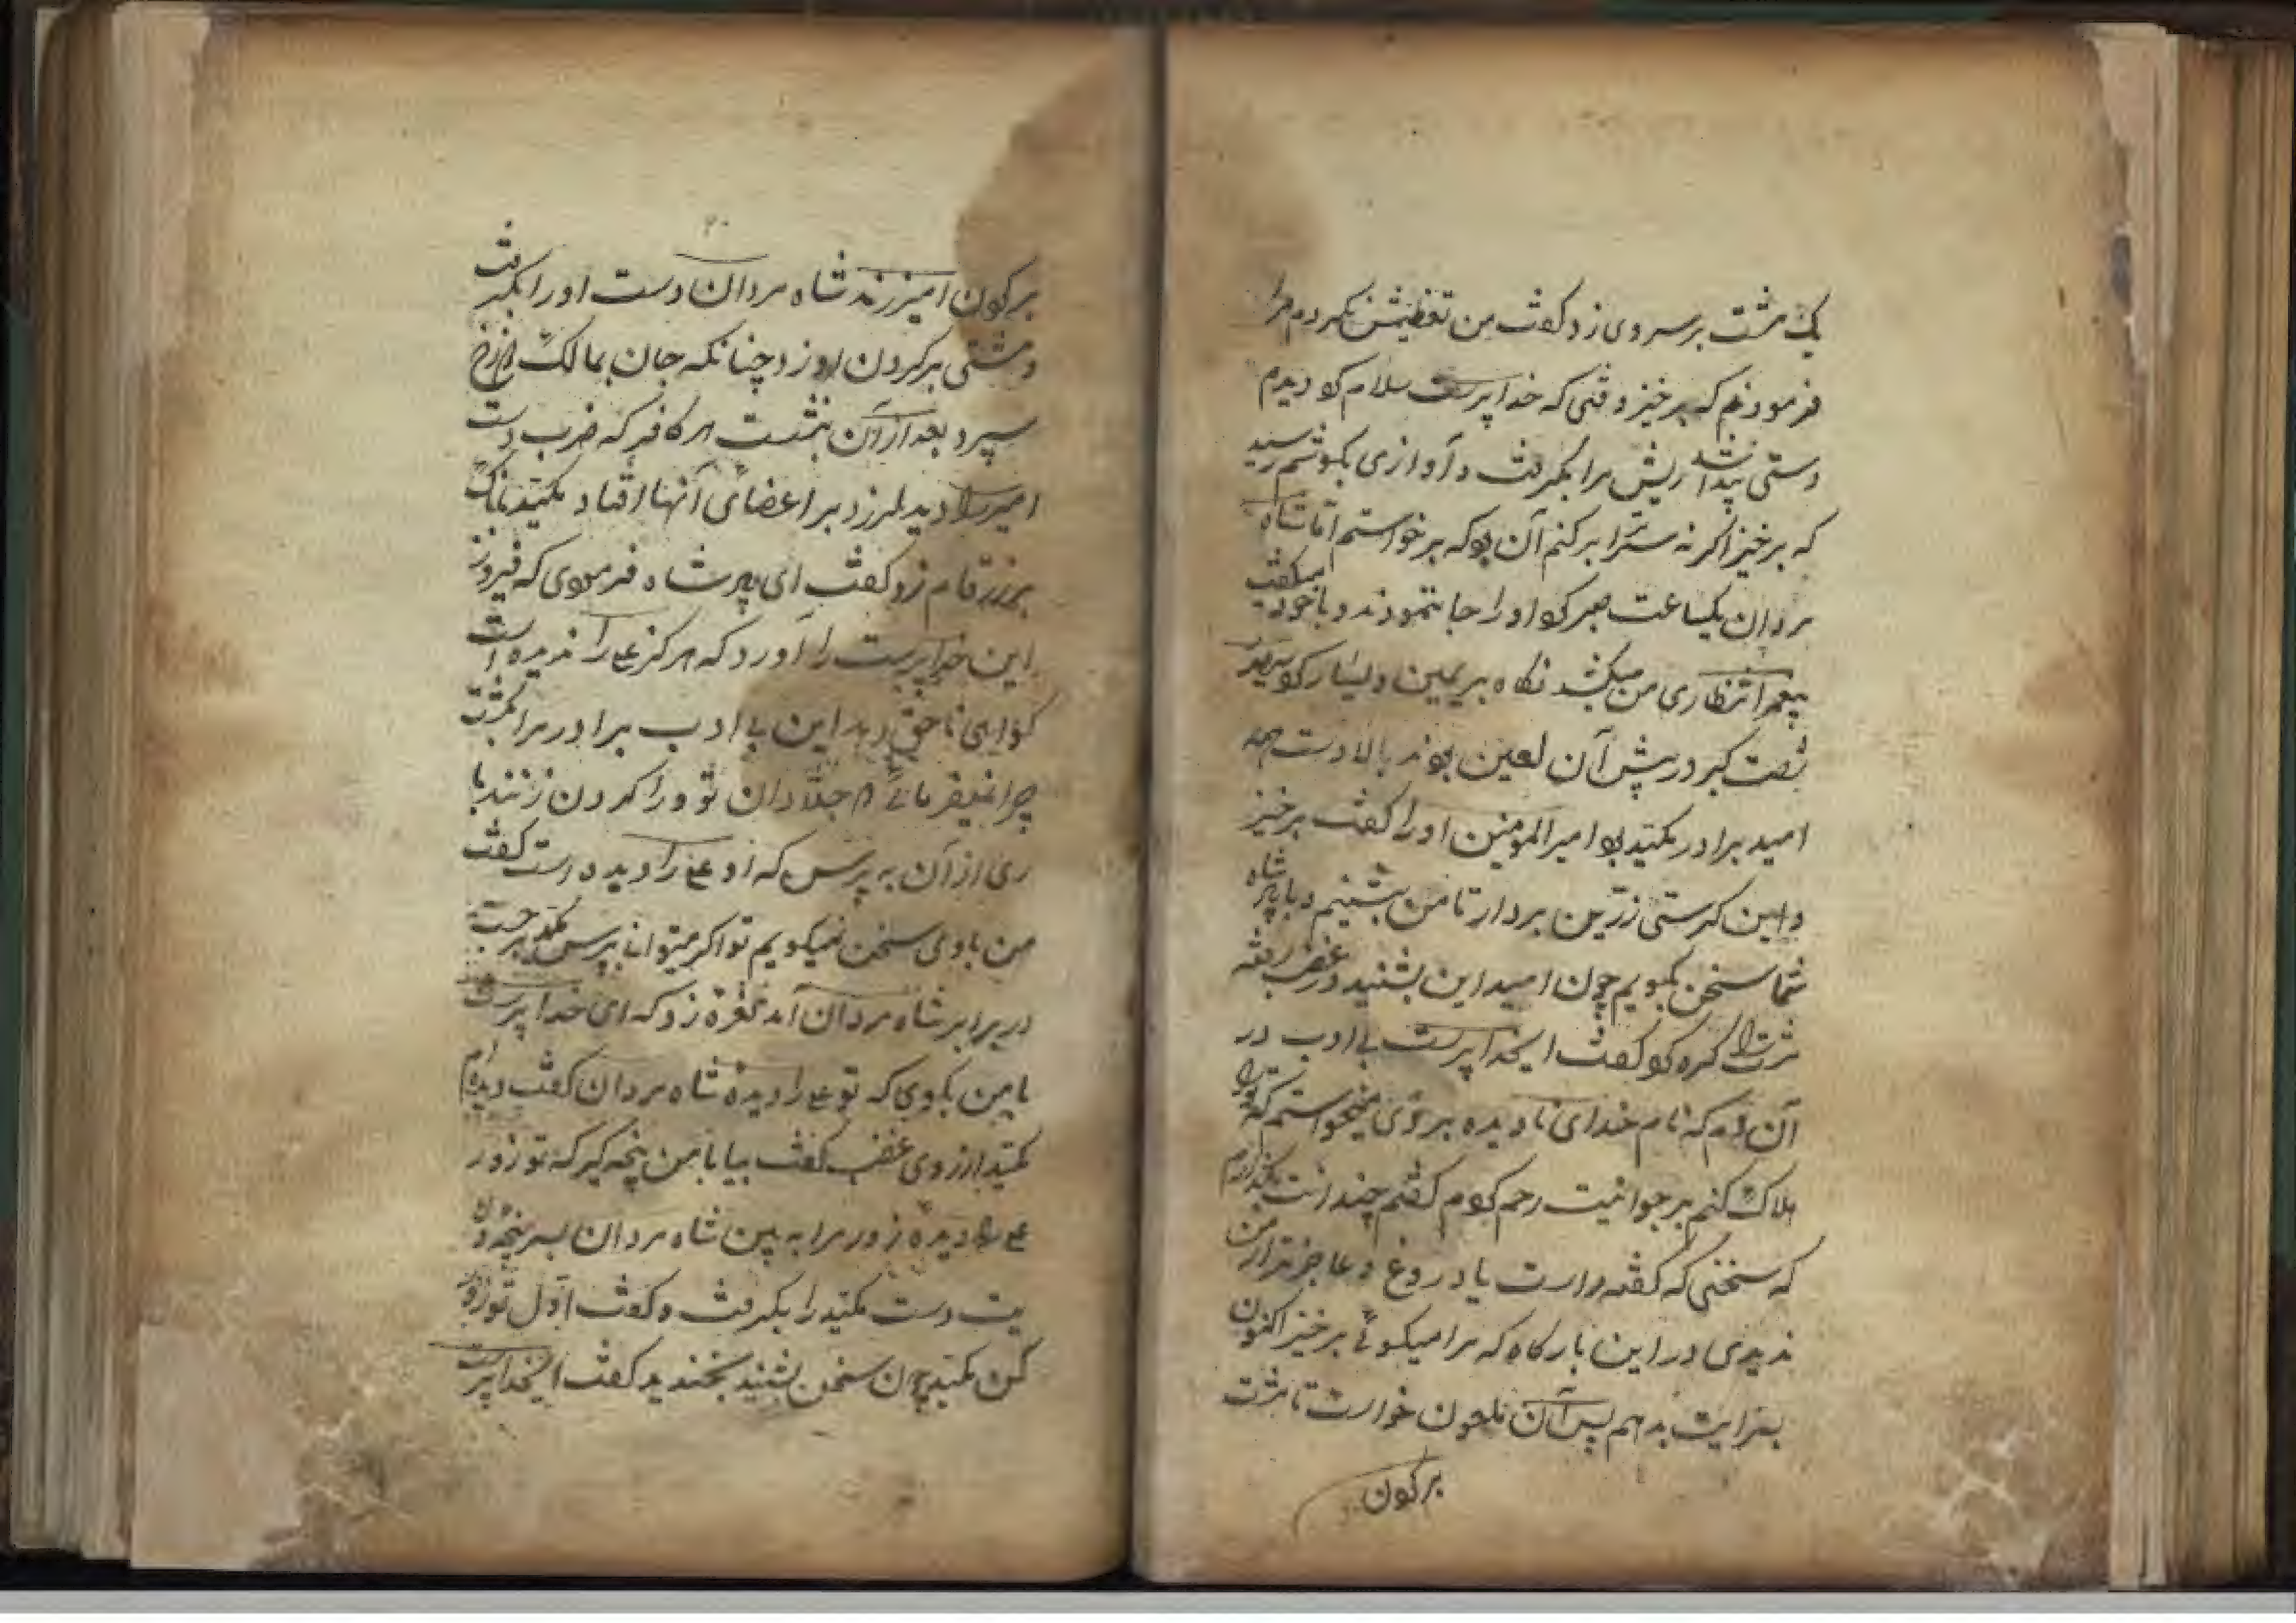 یک مشت بر سر وی زد گفت من تعظیمش نکردم مرا
فرمودم که برخیز وقتی که خداپرست سلام کرد دیدم
دستی پیدا شد ریش مرا بگرفت و آوازی بگوشم رسید
که برخیز اگر نه سرت را برکنم آن بود که برخواستم اما شاه
مردان یکساعت صبر کرد او را جا ننمودند و با خود میگفت
انتظاری من میکشد نگاه بر یمین و یسار کرد
شصت گبر در پیش آن لعین بودند بالا دست همه
امید برادر مکید بود امیرالمومنین او را گفت برخیز
و این کرستی زرین بردار تا من بنشینم و با پدر شاه
شما سخن بگویم چون امید این بشنید در غضب رفته
مشت را گره کرد گفت ایخداپرست بی ادب در
آن دم که نام خدای نادیده بردی میخواستم که ترا
هلاک کنم بر جوانیت رحم کردم گفتم چند است
که سخنی که گفته راست یا دروغ و عاجزتر از من
ندیدی در این بارگاه که مرا میگوئی برخیز اکنون
سزایت بدهم پس آن ملعون خواست تا مشت
برگردن
برگردن امیر زند شاه مردان دست او را بگرفت
و مشتی بر گردن او زد چنانکه جان بمالک دوزخ
سپرد بعد از آن بنشست هر کافر که ضرب دست
امیر را دید لرزه بر اعضای آنها افتاد مکید بانگ
بر زرقام زد گفت ای پدر شاه فرمودی که فیروز
این خداپرست را آورد که هرگز علی را ندیده است
گواهی ناحق دهد این بی ادب برادر مرا بکشت
چرا نمیفرمائی جلادان تو ورا گردن زنند با
ری از آن به پرس که او علی را دیده است گفت
من با وی سخن نمیگویم تو اگر میتوانی بپرس مکید برجست
در برابر شاه مردان آمد نعره زد که ای خداپرست
با من بگوی که تو علی را دیدهٔ شاه مردان گفت دیده ام
مکید از روی غضب گفت بیا با من پنجه گیر که تو زور
علی را دیدهٔ زور مرا به بین شاه مردان بسر پنجه
دست مکید را بگرفت و گفت اول تو زور
کن مکید چون سخن بشنید بخندید گفت ایخداپرست